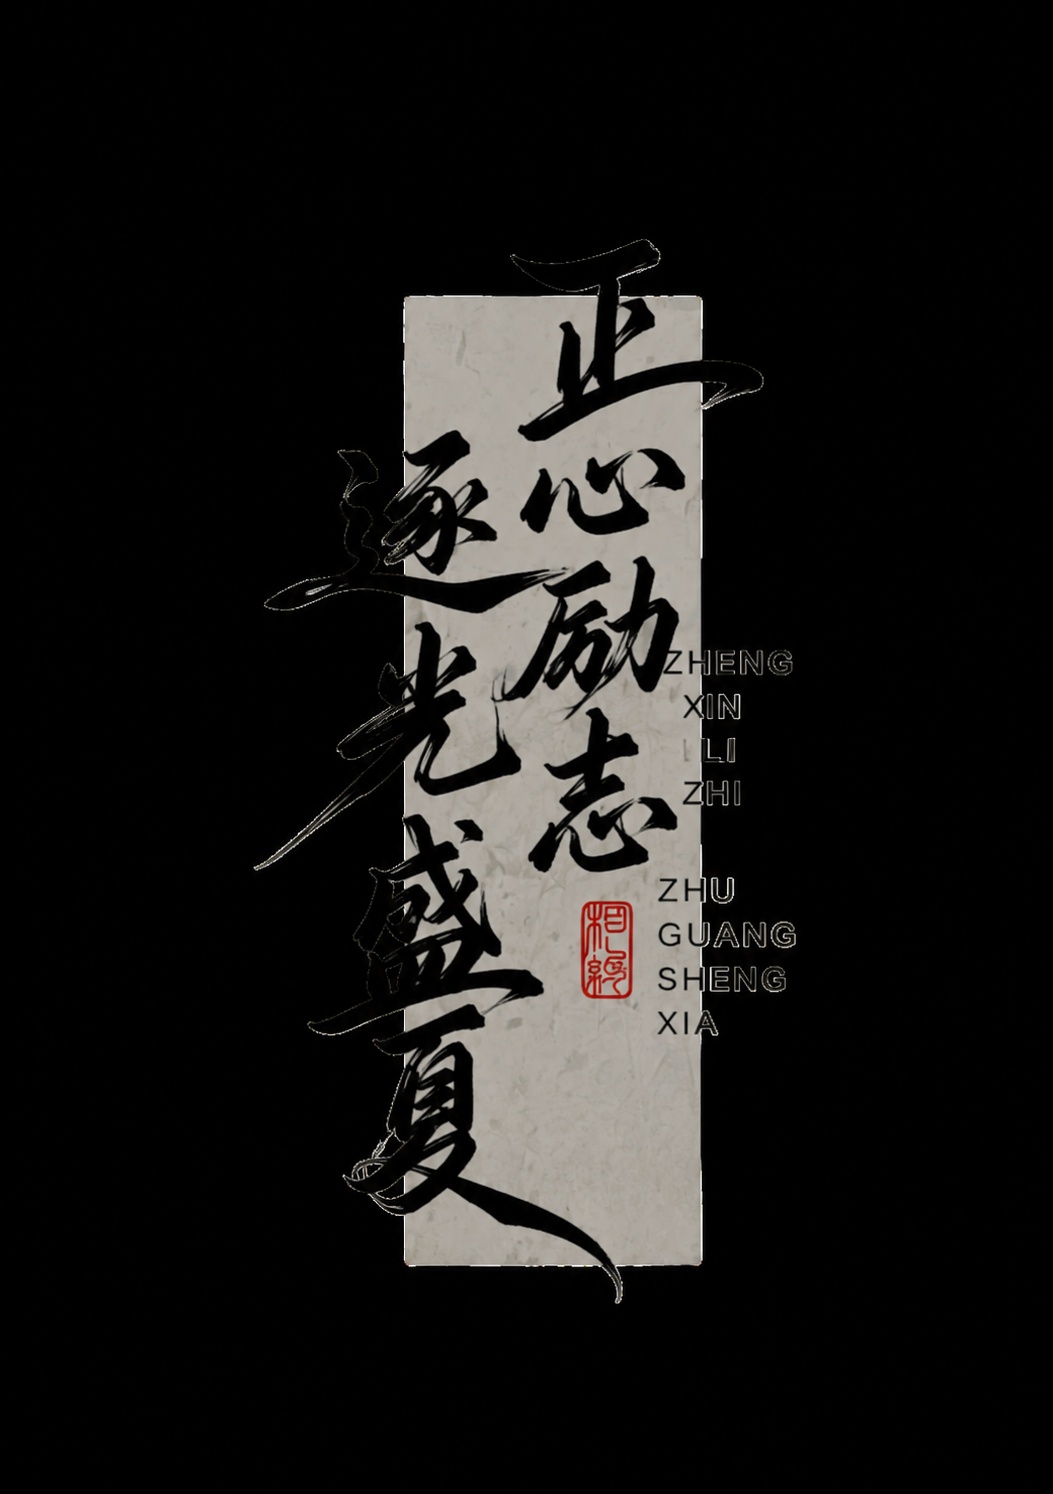 正心励志
逐光盛夏
ZHENG
XIN
LI
ZHI
ZHU
GUANG
SHENG
XIA